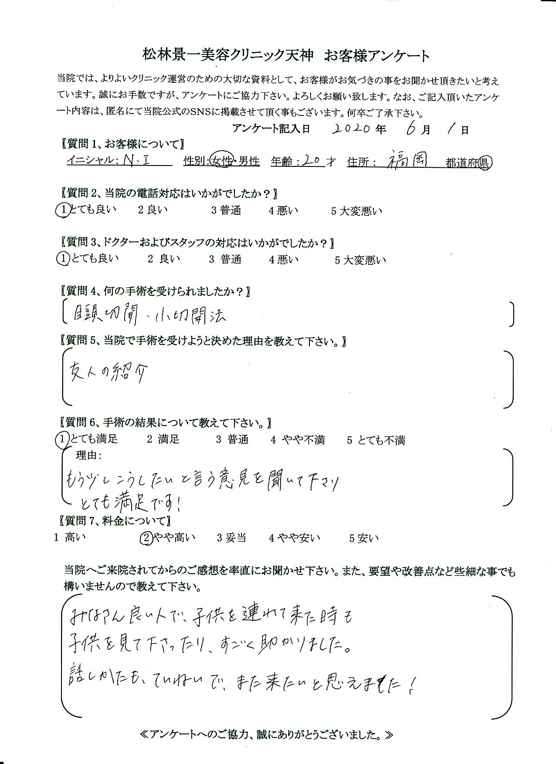 松林景一美容クリニック天神　お客様アンケート
当院では、よりよいクリニック運営のための大切な資料として、お客様がお気づきの事をお聞かせ頂きたいと考え
ています。誠にお手数ですが、アンケートにご協力下さい。よろしくお願い致します。なお、ご記入頂いたアンケ
ート内容は、匿名にて当院公式のSNSに掲載させて頂く事もございます。何卒ご了承下さい。
アンケート記入日　2020 年　6 月　1 日
〖質問1、お客様について〗
イニシャル：N.I　性別：女性・男性　年齢：20 才　住所：福岡　都道府県
〖質問2、当院の電話対応はいかがでしたか？〗
1とても良い　2 良い　3 普通　4 悪い　5 大変悪い
〖質問3、ドクターおよびスタッフの対応はいかがでしたか？〗
1とても良い　2 良い　3 普通　4 悪い　5 大変悪い
〖質問4、何の手術を受けられましたか？〗
目頭切開・小切開法
〖質問5、当院で手術を受けようと決めた理由を教えて下さい。〗
友人の紹介
〖質問6、手術の結果について教えて下さい。〗
1とても満足　2 満足　3 普通　4 やや不満　5 とても不満
理由：
もう少しこうしたいと言う意見を聞いて下さり
とても満足です!
〖質問7、料金について〗
1 高い　2やや高い　3 妥当　4 やや安い　5 安い
当院へご来院されてからのご感想を率直にお聞かせ下さい。また、要望や改善点など些細な事でも
構いませんので教えて下さい。
みなさん良い人で、子供を連れて来た時も
子供を見て下さったり、すごく助かりました。
話しかたも、ていねいで、また来たいと思えました!
≪アンケートへのご協力、誠にありがとうございました。≫